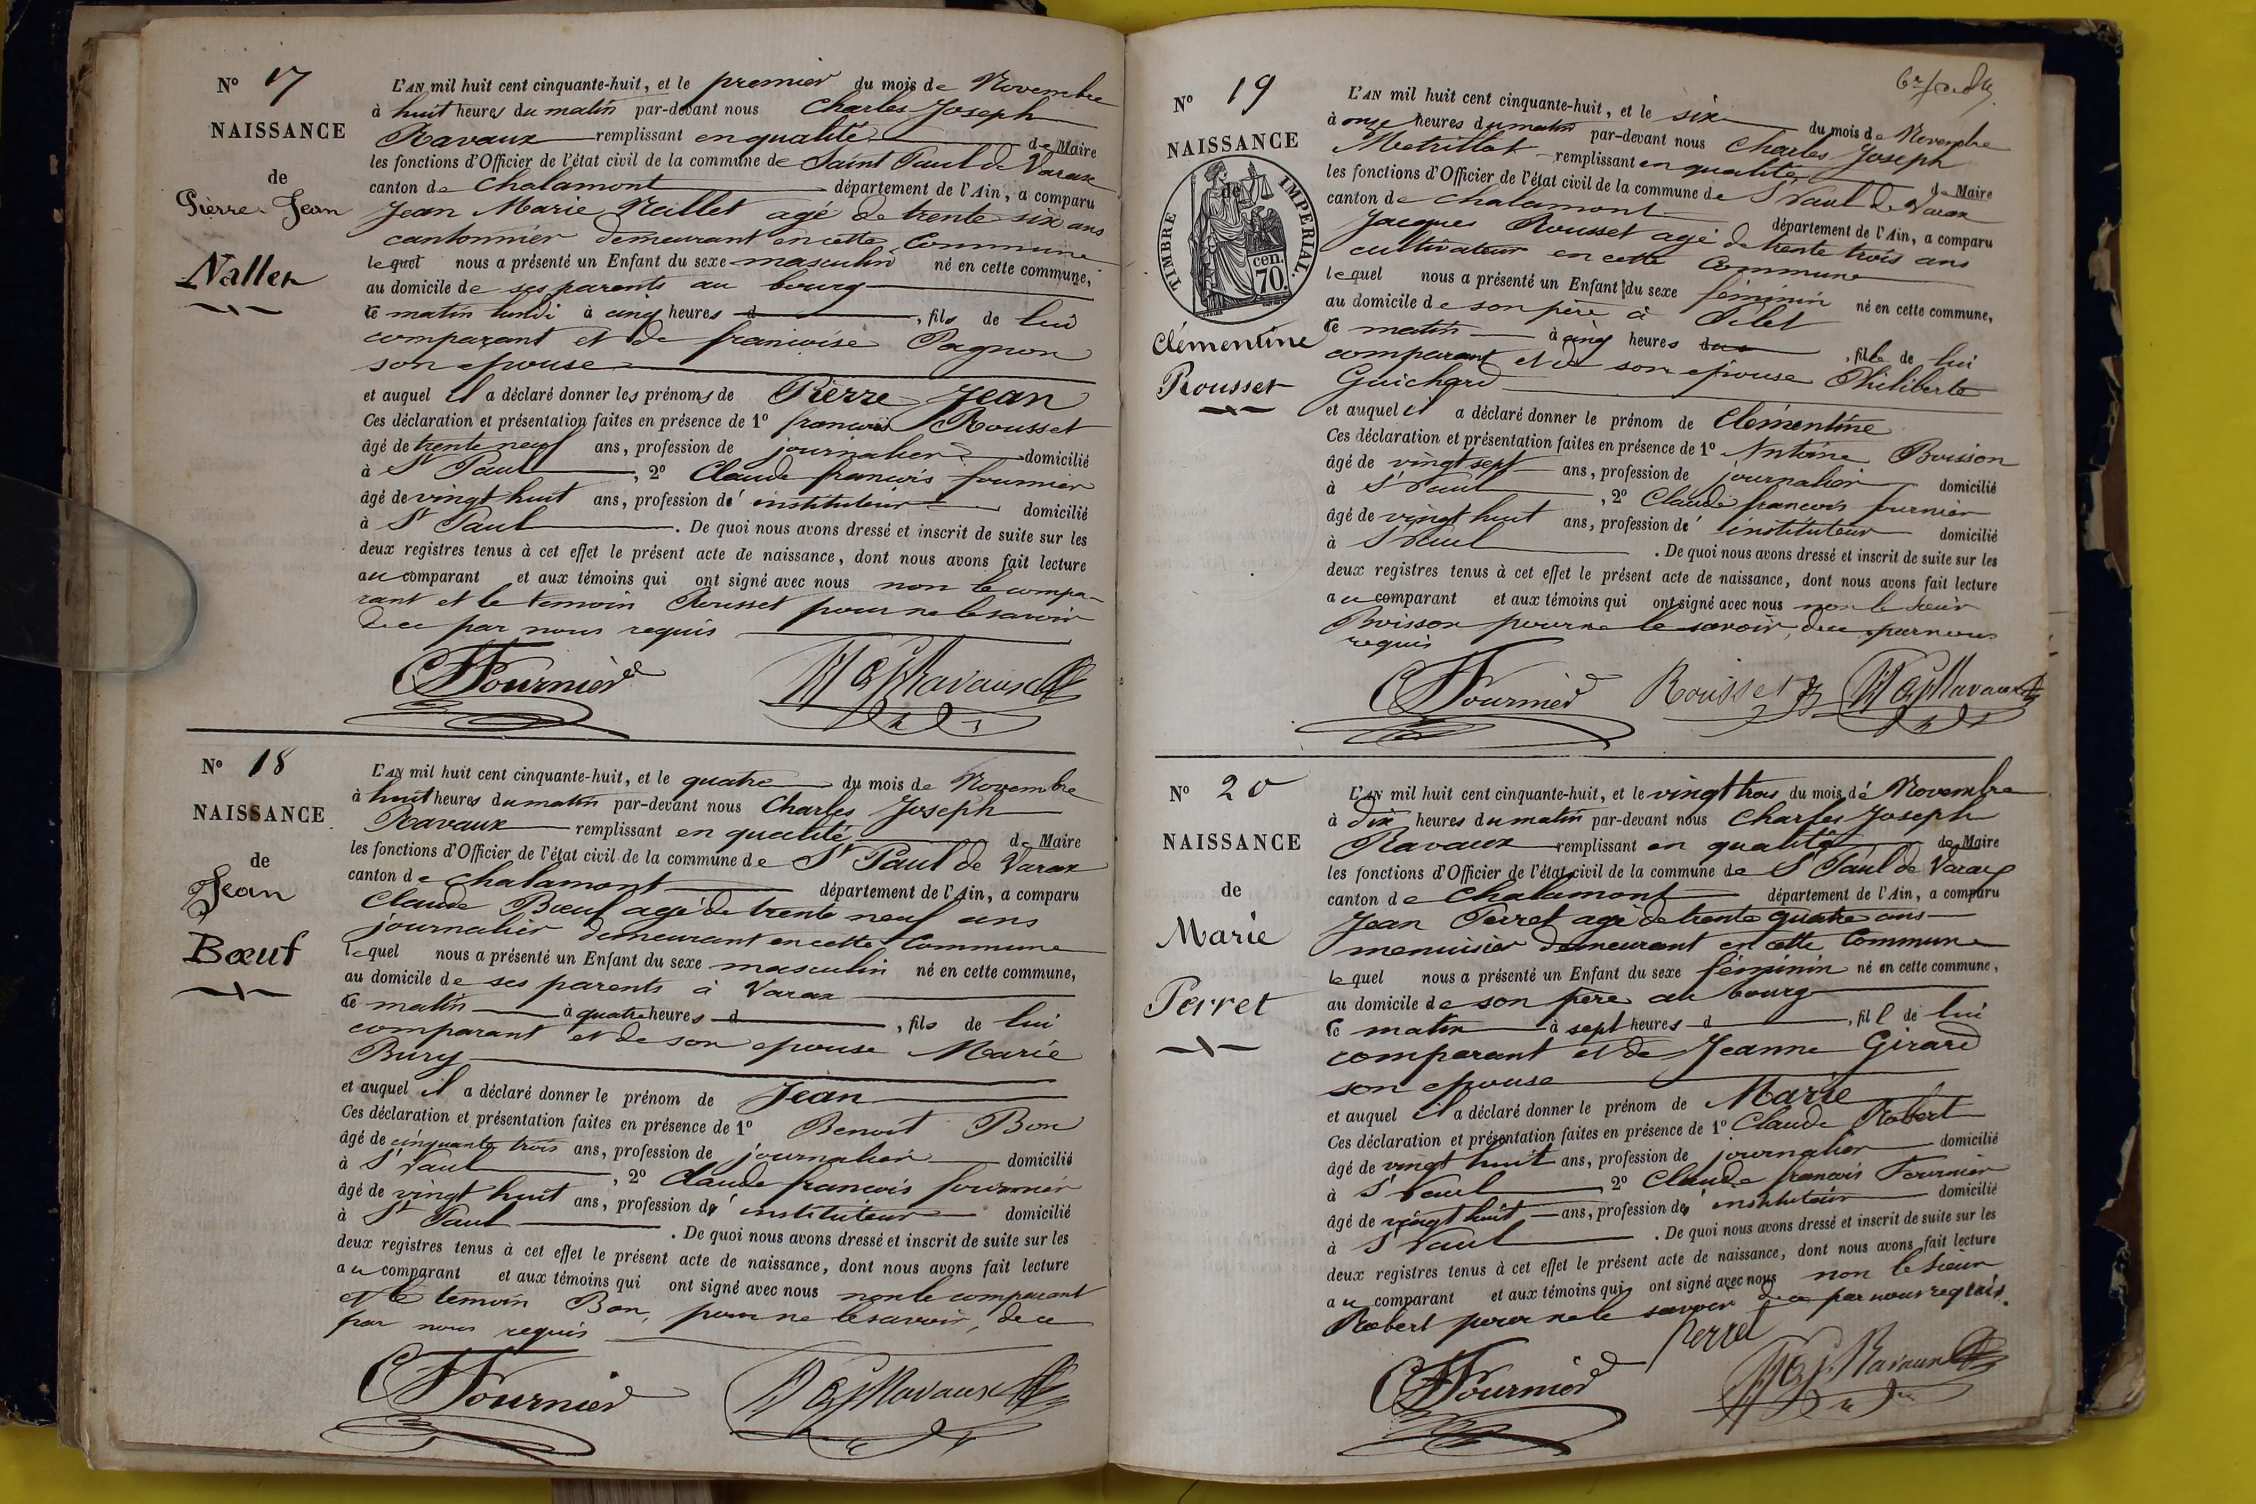 N° 17
NAISSANCE
de
Pierre Jean
L'AN mil huit cent cinquante-huit, et le premier du mois de Novembre
à huit heures du matin par-devant nous Charles Joseph
Ravaux remplissant en qualité de Maire
les fonctions d'Officier de l'état civil de la commune de Saint Paul de Varax
canton de Chalamont département de l'Ain, a comparu
Jean Marie agé de trente six ans
cantonnier demeurant en cette Commune
lequel nous a présenté un Enfant du sexe masculin né en cette commune,
au domicile de ses parents au bourg
ce matin lundi à cinq heures d , fils de lui
comparant et de francoise Pagnon
son epouse
et auquel il a déclaré donner les prénoms de Pierre Jean
Ces déclaration et présentation faites en présence de 1° francois Rousset
âgé de trente neuf ans, profession de journalier domicilié
à St Paul , 2° Claude francois fournier
âgé de vingt huit ans, profession d' instituteur domicilié
à St Paul . De quoi nous avons dressé et inscrit de suite sur les
deux registres tenus à cet effet le présent acte de naissance, dont nous avons fait lecture
au comparant et aux témoins qui ont signé avec nous non le compa-
rant et le temoin Rousset pour ne le savoir
de ce par nous requis
Fournier Ravaux
N° 18
NAISSANCE
de
Jean
Bœuf
L'AN mil huit cent cinquante-huit, et le quatre du mois de Novembre
à huit heures du matin par-devant nous Charles Joseph
Ravaux remplissant en qualité de Maire
les fonctions d'Officier de l'état civil de la commune de St Paul de Varax
canton de Chalamont département de l'Ain, a comparu
Claude Bœuf agé de trente neuf ans
journalier demeurant en cette Commune
lequel nous a présenté un Enfant du sexe masculin né en cette commune,
au domicile de ses parents à Varax
ce matin à quatre heures d , fils de lui
comparant et de son epouse Marie
Bury
et auquel il a déclaré donner le prénom de Jean
Ces déclaration et présentation faites en présence de 1° Benoit Bon
âgé de cinquante trois ans, profession de journalier domicilié
à St Paul , 2° Claude francois fournier
âgé de vingt huit ans, profession d' instituteur domicilié
à St Paul . De quoi nous avons dressé et inscrit de suite sur les
deux registres tenus à cet effet le présent acte de naissance, dont nous avons fait lecture
au comparant et aux témoins qui ont signé avec nous non le comparant
et le temoin Bon, pour ne le savoir, de ce
par nous requis
Fournier Ravaux
N° 19
NAISSANCE
de
TIMBRE IMPERIAL.
cen. 70.
Clémentine
Rousset
L'AN mil huit cent cinquante-huit, et le six du mois de Novembre
à onze heures du matin par-devant nous Charles Joseph
remplissant en qualité de Maire
les fonctions d'Officier de l'état civil de la commune de St Paul de Varax
canton de Chalamont département de l'Ain, a comparu
Jacques Rousset agé de trente trois ans
cultivateur en cette Commune
lequel nous a présenté un Enfant du sexe féminin né en cette commune,
au domicile de son père à
ce matin à cinq heures , fille de lui
comparant et de son epouse Philiberte
Guichard
et auquel il a déclaré donner le prénom de Clémentine
Ces déclaration et présentation faites en présence de 1° Antoine Boisson
âgé de vingt sept ans, profession de journalier domicilié
à St Paul , 2° Claude francois fournier
âgé de vingt huit ans, profession d' instituteur domicilié
à St Paul . De quoi nous avons dressé et inscrit de suite sur les
deux registres tenus à cet effet le présent acte de naissance, dont nous avons fait lecture
au comparant et aux témoins qui ont signé avec nous non le sieur
Boisson pour ne le savoir, de ce par nous
requis
Fournier Rousset Ravaux
N° 20
NAISSANCE
de
Marie
Perret
L'AN mil huit cent cinquante-huit, et le vingt trois du mois de Novembre
à dix heures du matin par-devant nous Charles Joseph
Ravaux remplissant en qualité de Maire
les fonctions d'Officier de l'état civil de la commune de St Paul de Varax
canton de Chalamont département de l'Ain, a comparu
Jean Perret agé de trente quatre ans
menuisier demeurant en cette Commune
lequel nous a présenté un Enfant du sexe féminin né en cette commune,
au domicile de son père au bourg
ce matin à sept heures d , fil l de lui
comparant et de Jeanne Girard
son epouse
et auquel il a déclaré donner le prénom de Marie
Ces déclaration et présentation faites en présence de 1° Claude Robert
âgé de vingt huit ans, profession de journalier domicilié
à St Paul 2° Claude francois Fournier
âgé de vingt huit ans, profession d' instituteur domicilié
à St Paul . De quoi nous avons dressé et inscrit de suite sur les
deux registres tenus à cet effet le présent acte de naissance, dont nous avons fait lecture
au comparant et aux témoins qui ont signé avec nous non le sieur
Robert pour ne le savoir de ce par nous requis.
Perret
Fournier Ravaux